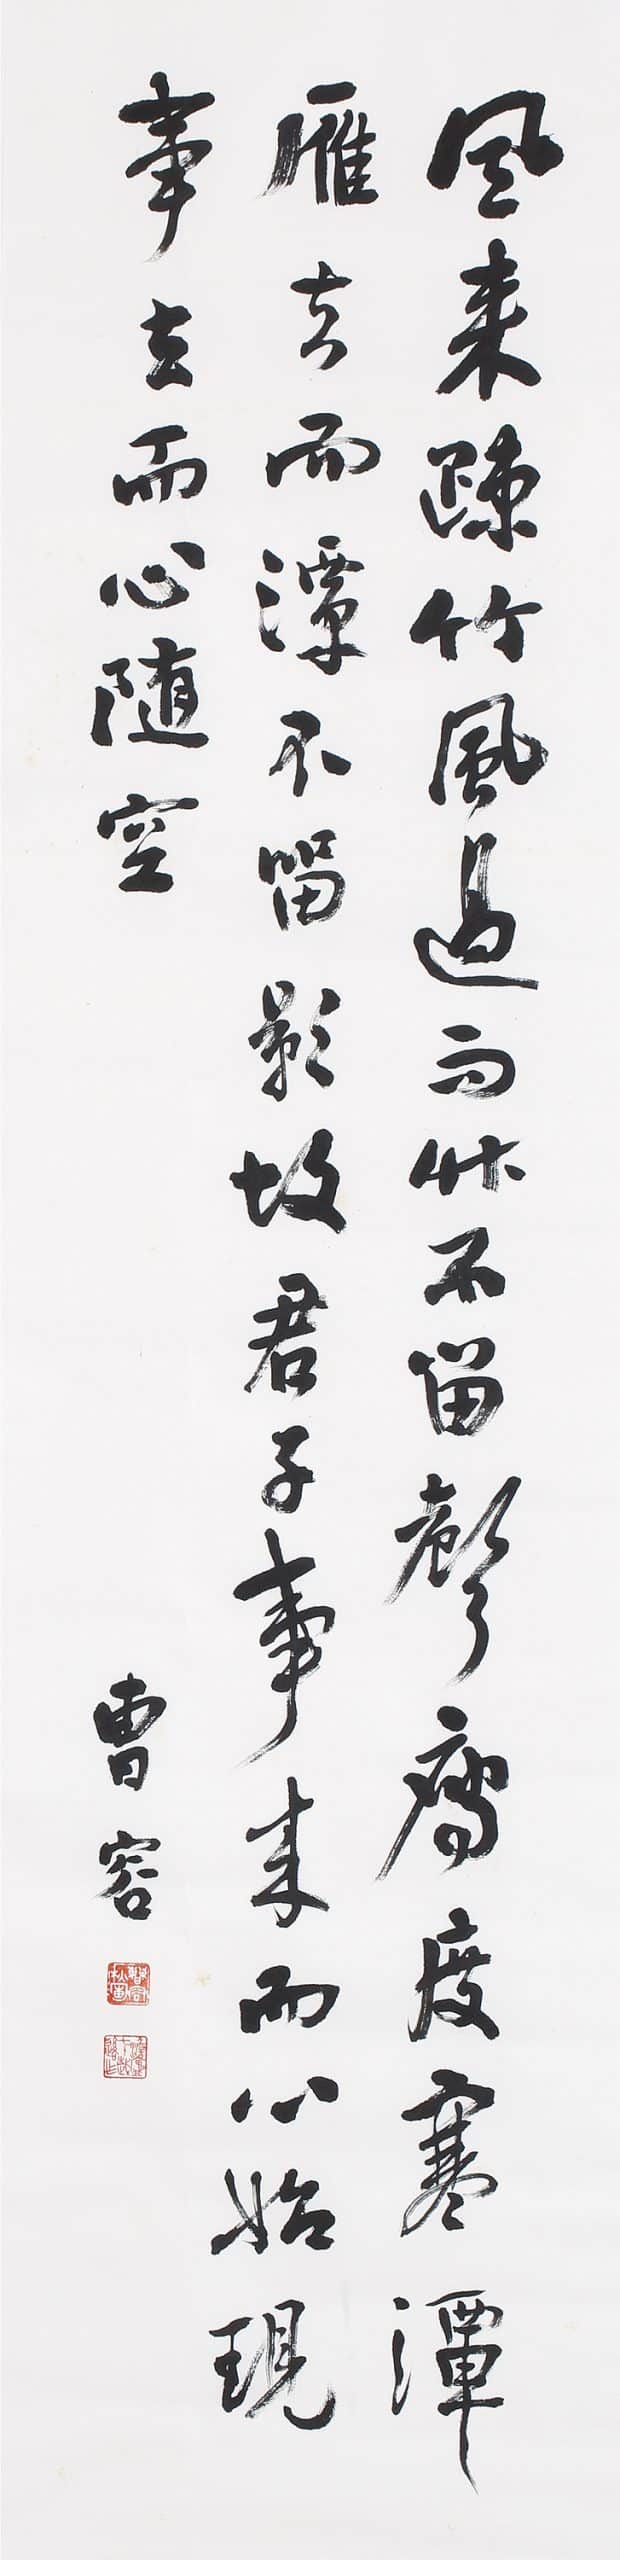 風來疎竹風過而竹不留聲雁度寒潭
雁去而潭不留影故君子事來而心始現
事去而心随空
曹容